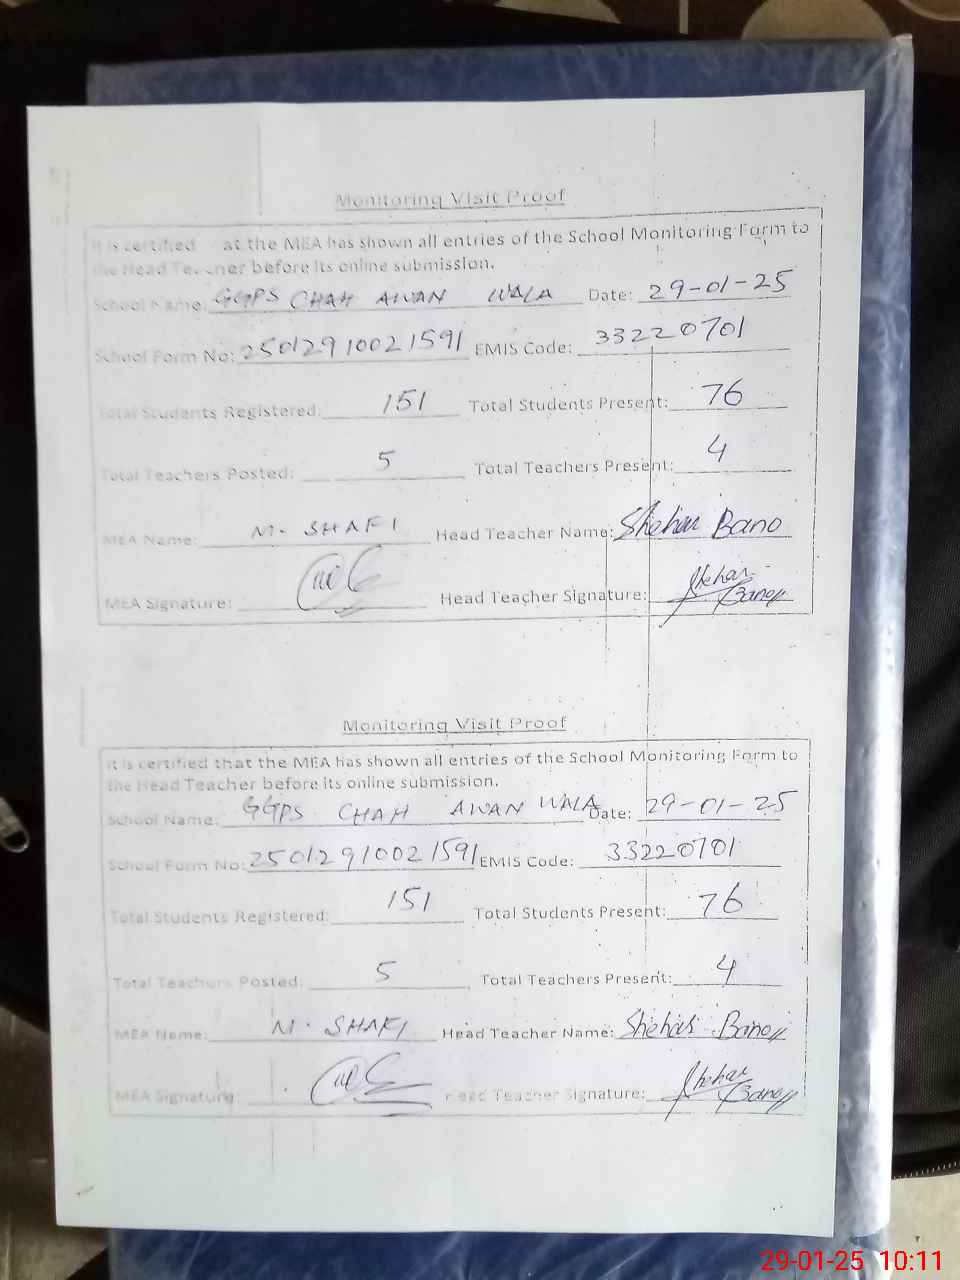 Monitoring Visit Proof
It is certified at the MEA has shown all entries of the School Monitoring Form to
the Head Teacher before its online submission.
School Name: GGPS CHAH AWAN WALA Date: 29-01-25
School Form No: 25012910021591 EMIS Code: 33220701
Total Students Registered: 151 Total Students Present: 76
Total Teachers Posted: 5 Total Teachers Present: 4
MEA Name: M. SHAFI Head Teacher Name: Shehar Bano
MEA Signature: Head Teacher Signature: Shehar
Bano
Monitoring Visit Proof
It is certified that the MEA has shown all entries of the School Monitoring Form to
the Head Teacher before its online submission.
School Name: GGPS CHAH AWAN WALA Date: 29-01-25
School Form No: 25012910021591 EMIS Code: 33220701
Total Students Registered: 151 Total Students Present: 76
Total Teachers Posted: 5 Total Teachers Present: 4
MEA Name: M. SHAFI Head Teacher Name: Shehar Bano
MEA Signature: Head Teacher Signature: Shehar
Bano
29-01-25 10:11